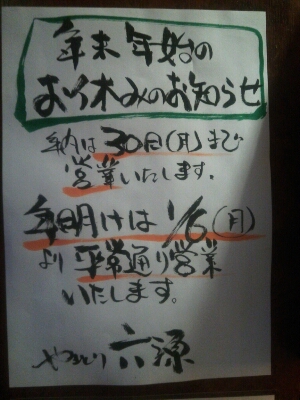 年末年始の
お休みのお知らせ
年内は30日(月)まで
営業いたします。
年明けは1/6(月)
より平常通り営業
いたします。
やきとり 六源